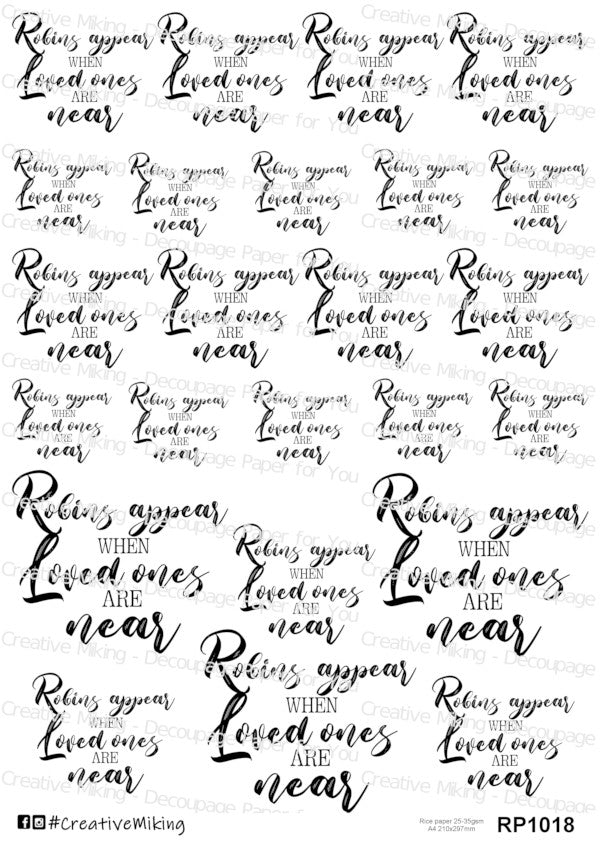 Robins appear
WHEN
Loved ones
ARE
near
Robins appear
WHEN
Loved ones
ARE
near
Robins appear
WHEN
Loved ones
ARE
near
Robins appear
WHEN
Loved ones
ARE
near
Robins appear
WHEN
Loved ones
ARE
near
Robins appear
WHEN
Loved ones
ARE
near
Robins appear
WHEN
Loved ones
ARE
near
Robins appear
WHEN
Loved ones
ARE
near
Robins appear
WHEN
Loved ones
ARE
near
Robins appear
WHEN
Loved ones
ARE
near
Robins appear
WHEN
Loved ones
ARE
near
Robins appear
WHEN
Loved ones
ARE
near
Robins appear
WHEN
Loved ones
ARE
near
Robins appear
WHEN
Loved ones
ARE
near
Robins appear
WHEN
Loved ones
ARE
near
Robins appear
WHEN
Loved ones
ARE
near
Robins appear
WHEN
Loved ones
ARE
near
Robins appear
WHEN
Loved ones
ARE
near
Robins appear
WHEN
Loved ones
ARE
near
Robins appear
WHEN
Loved ones
ARE
near
Robins appear
WHEN
Loved ones
ARE
near
Robins appear
WHEN
Loved ones
ARE
near
Robins appear
WHEN
Loved ones
ARE
near
Robins appear
WHEN
Loved ones
ARE
near
Creative Miking - Decoupage Paper for You
#CreativeMiking
Rice paper 25-35gsm
A4 210x297mm
RP1018